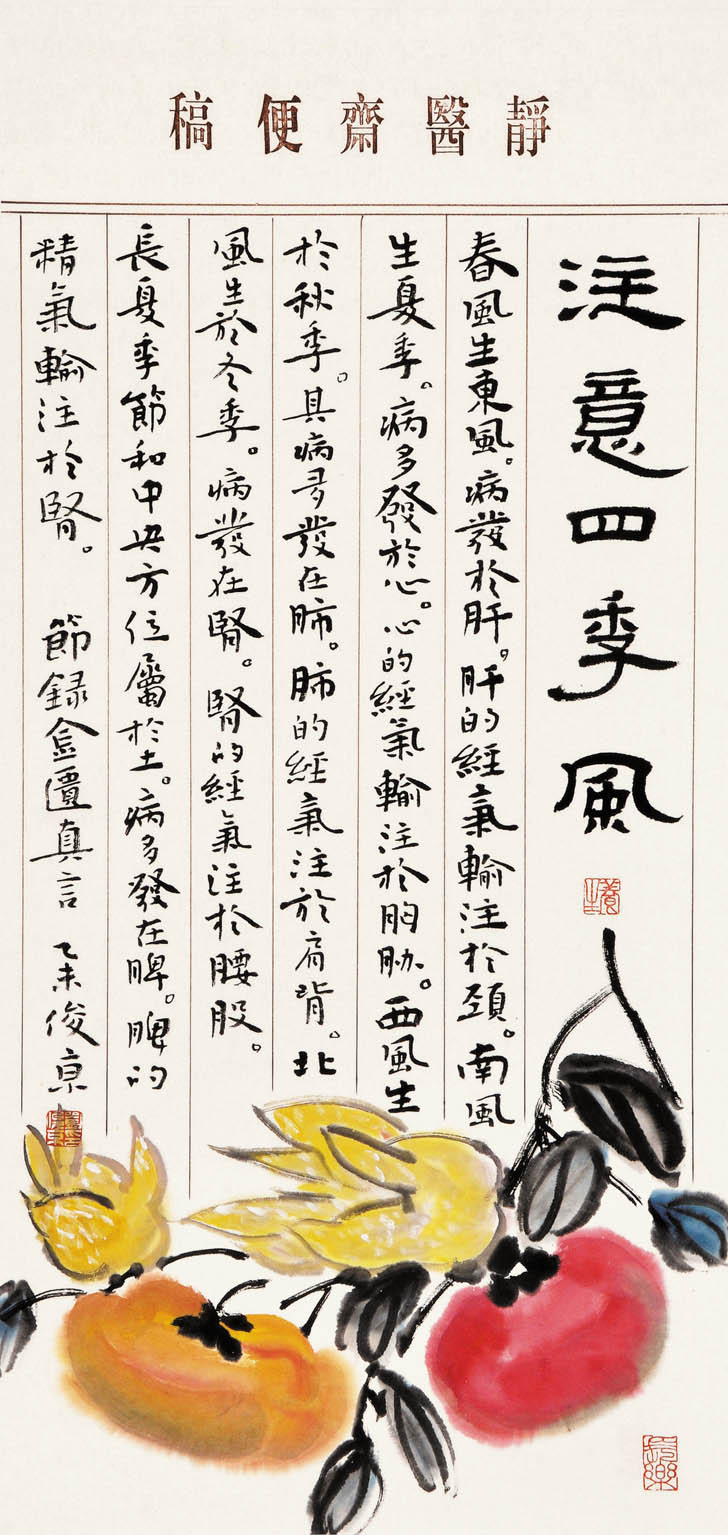 靜醫齋便稿
注意四季風
養生
春風生東風。病發於肝。肝的經氣輸注於頚。南風
生夏季。病多發於心。心的經氣輸注於胸胁。西風生
於秋季。其病多發在肺。肺的經氣注於肩背。北
風生於冬季。病發在腎。腎的經氣注於腰股。
長夏季節和中央方位屬於土。病多發在脾。脾的
精氣輸注於腎。 節録金匱真言 乙未俊京
長樂